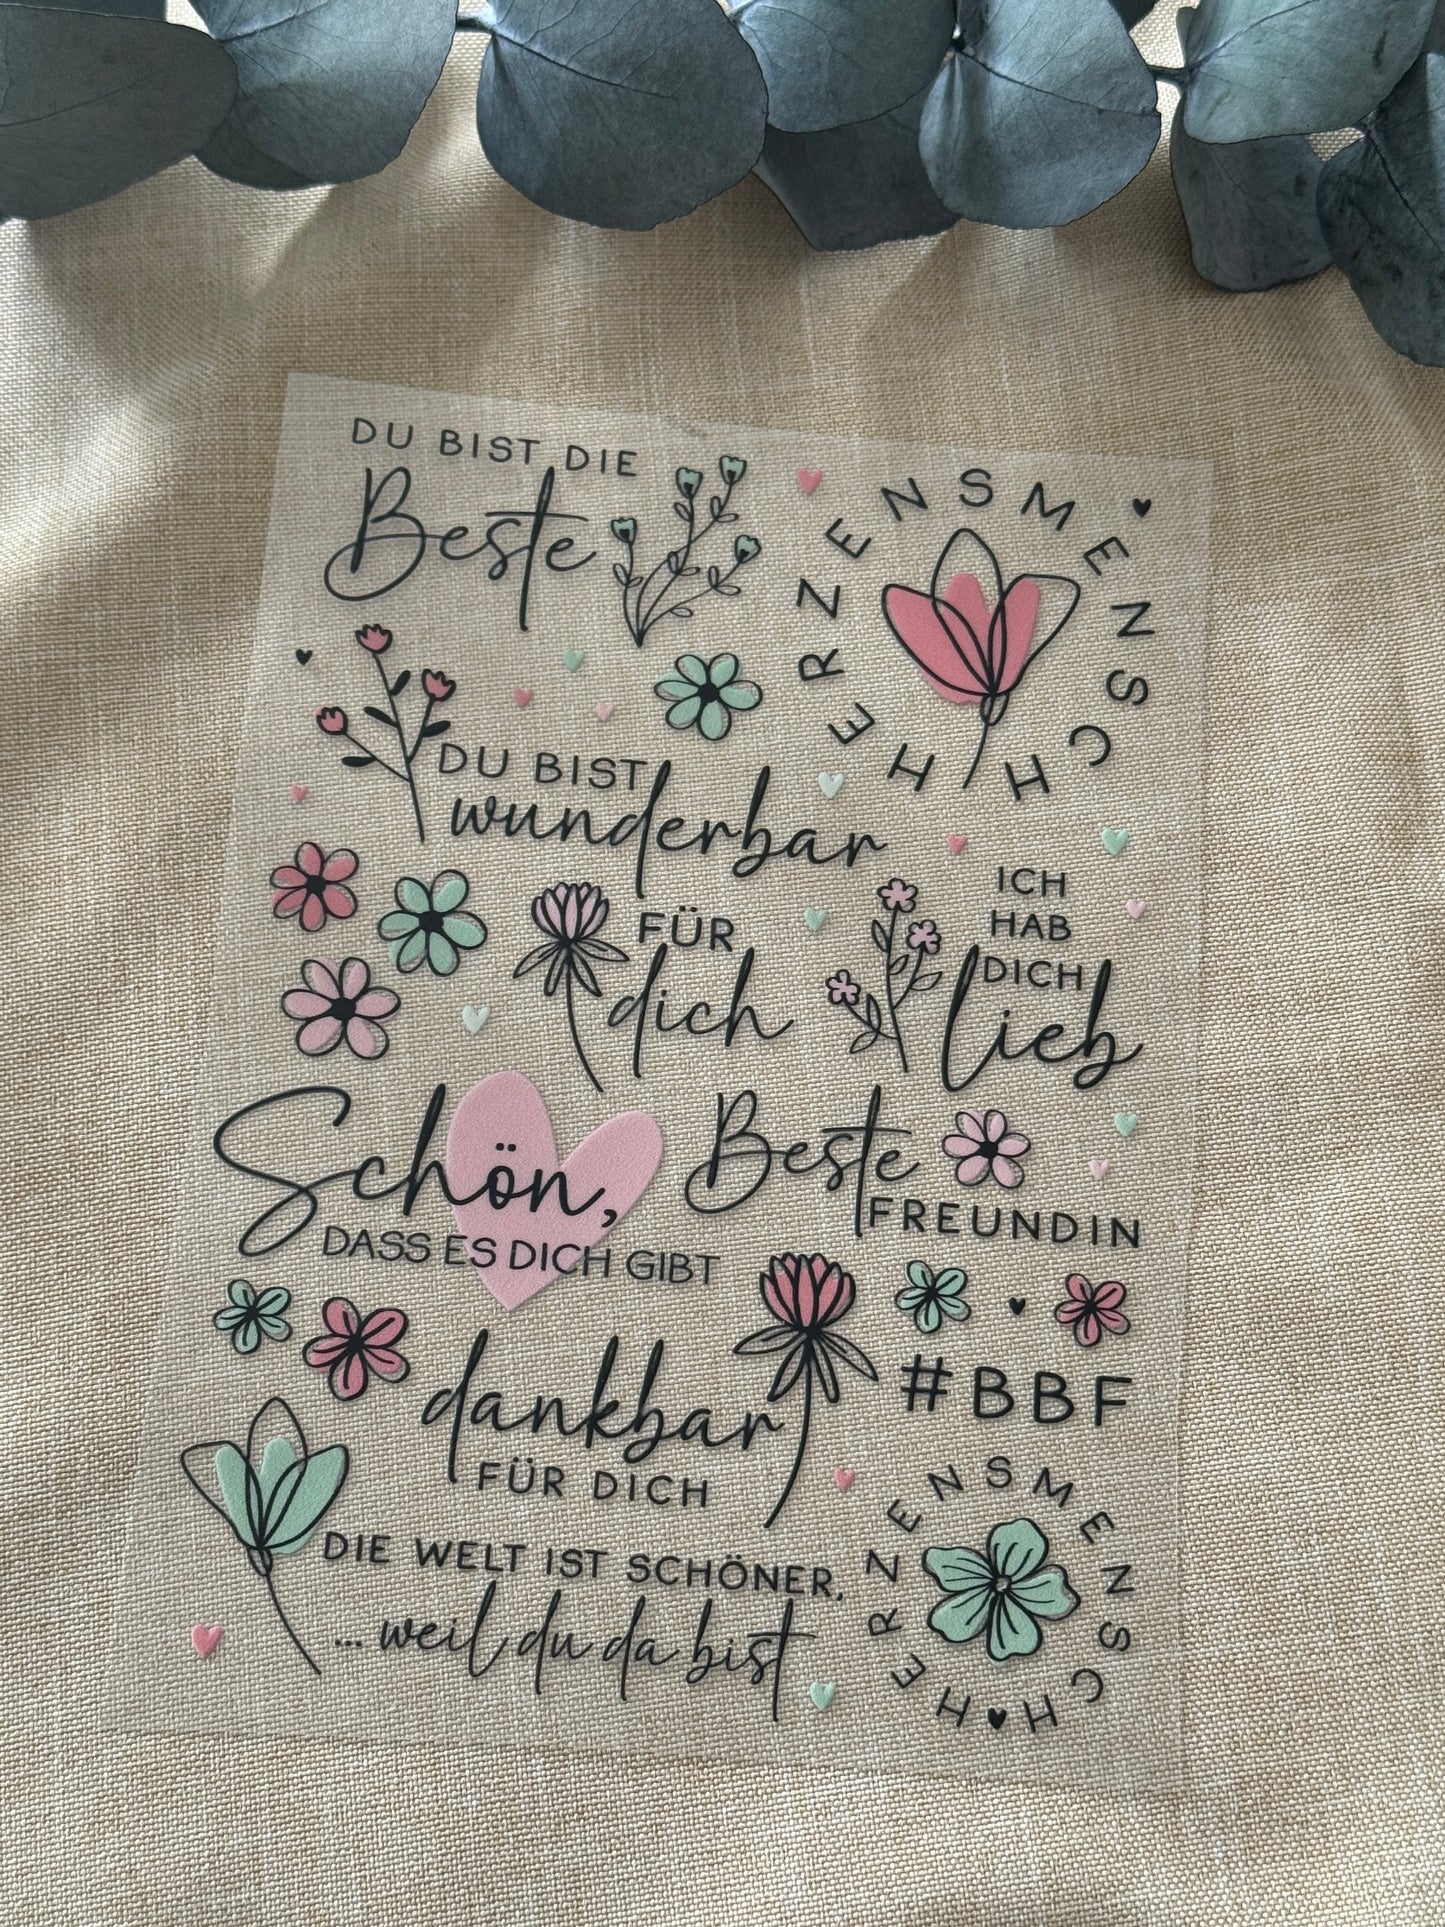 DU BIST DIE
Beste
HERZENSMENSCH
DU BIST
wunderbar
FÜR
dich
ICH
HAB
DICH
lieb
Schön,
DASS ES DICH GIBT
Beste
FREUNDIN
dankbar
FÜR DICH
#BBF
DIE WELT IST SCHÖNER,
... weil du da bist
HERZENSMENSCH